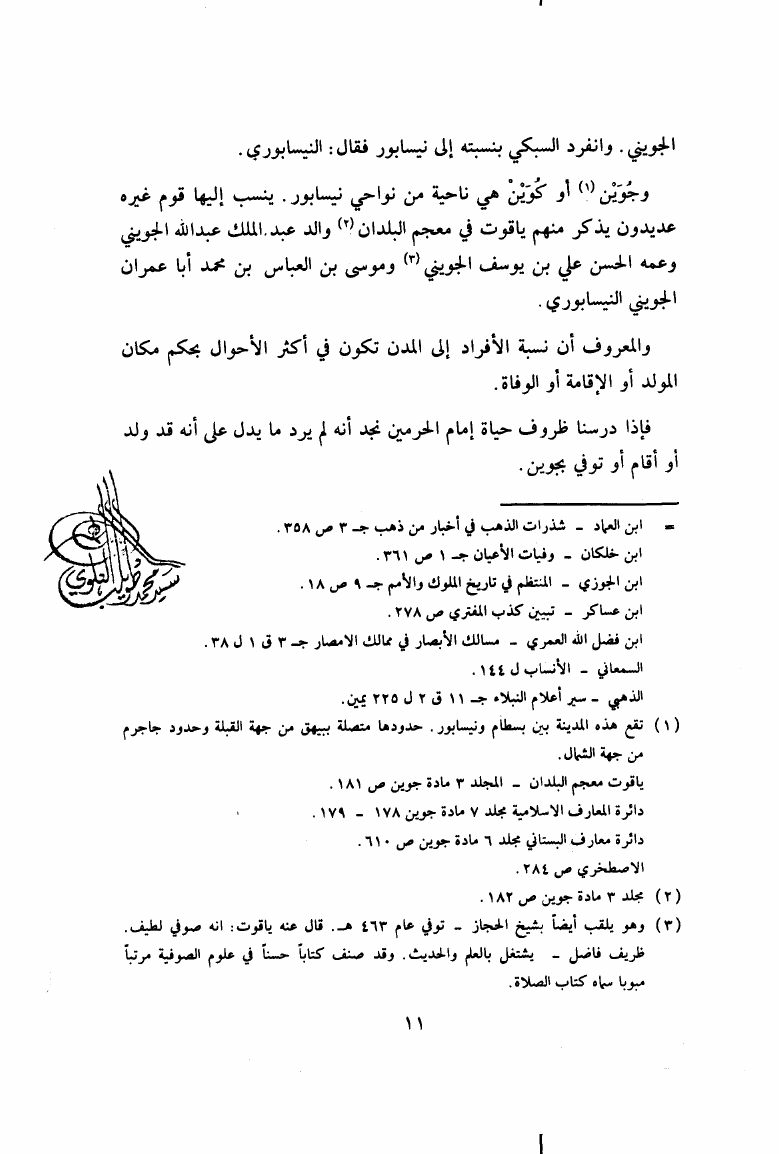 الجويني. وانفرد السبكي بنسبته إلى نيسابور فقال: النيسابوري.
وجُوَيْن (١) أو كُوَيْنْ هي ناحية من نواحي نيسابور. ينسب إليها قوم غيره
عديدون يذكر منهم ياقوت في معجم البلدان (٢) والد عبد.الملك عبدالله الجويني
وعمه الحسن علي بن يوسف الجويني (٣) وموسى بن العباس بن محمد أبا عمران
الجويني النيسابوري.
والمعروف أن نسبة الأفراد إلى المدن تكون في أكثر الأحوال بحكم مكان
المولد أو الإقامة أو الوفاة.
فإذا درسنا ظروف حياة إمام الحرمين نجد أنه لم يرد ما يدل على أنه قد ولد
أو أقام أو توفي بجوين.
= ابن العماد – شذرات الذهب في أخبار من ذهب جـ ٣ ص ٣٥٨.
ابن خلكان – وفيات الأعيان جـ ١ ص ٣٦١.
ابن الجوزي – المنتظم في تاريخ الملوك والأمم جـ ٩ ص ١٨.
ابن عساكر – تبيين كذب المفتري ص ٢٧٨.
ابن فضل الله العمري – مسالك الأبصار في ممالك الامصار جـ ٣ ق ١ ل ٣٨.
السمعاني – الأنساب ل ١٤٤.
الذهبي – سير أعلام النبلاء جـ ١١ ق ٢ ل ٢٢٥ يمين.
(١) تقع هذه المدينة بين بسطام ونيسابور. حدودها متصلة ببيهق من جهة القبلة وحدود جاجرم
من جهة الشمال.
ياقوت معجم البلدان – المجلد ٣ مادة جوين ص ١٨١.
دائرة المعارف الاسلامية مجلد ٧ مادة جوين ١٧٨ – ١٧٩.
دائرة معارف البستاني مجلد ٦ مادة جوين ص ٦١٠.
الاصطخري ص ٢٨٤.
(٢) مجلد ٣ مادة جوين ص ١٨٢.
(٣) وهو يلقب أيضاً بشيخ الحجاز – توفي عام ٤٦٣ هـ. قال عنه ياقوت: انه صوفي لطيف.
ظريف فاضل – يشتغل بالعلم والحديث. وقد صنف كتاباً حسناً في علوم الصوفية مرتباً
مبوبا سماه كتاب الصلاة.
١١